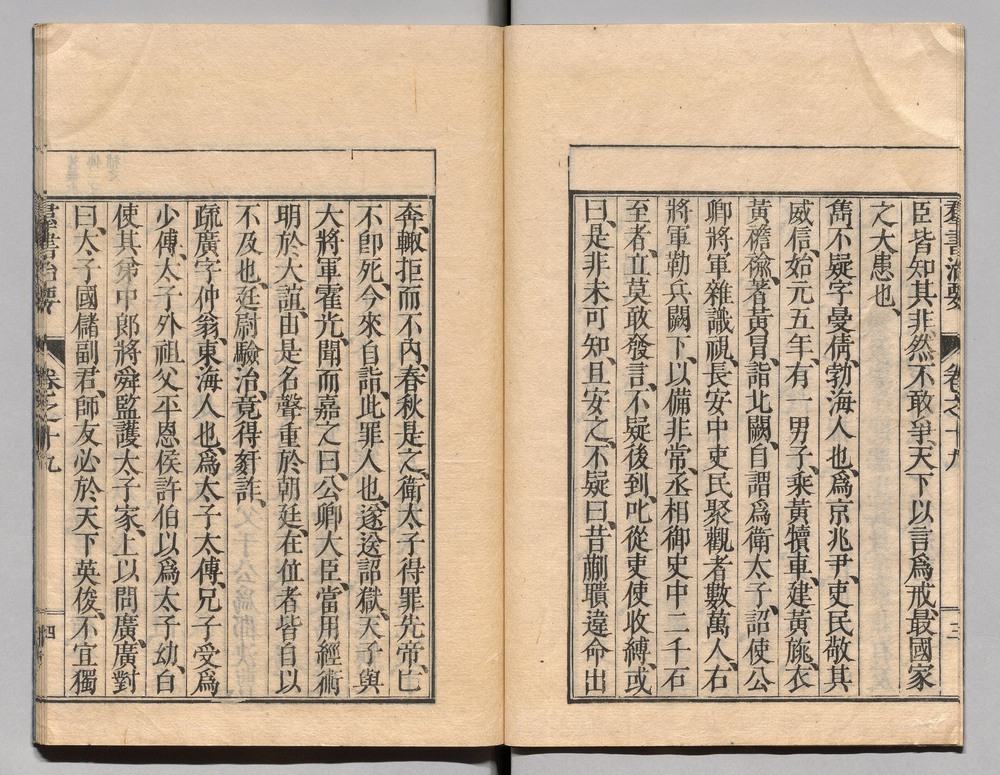 羣書治要 卷之十九 三
臣皆知其非、然不敢爭、天下以言爲戒最國家
之大患也、
雋不疑字曼倩、勃海人也、爲京兆尹、吏民敬其
威信、始元五年、有一男子、乘黃犢車、建黃旐、衣
黃襜褕、著黃冒、詣北闕、自謂爲衛太子、詔使公
卿將軍雜識視、長安中吏民聚觀者數萬人、右
將軍勒兵闕下、以備非常、丞相御史中二千石
至者、立莫敢發言、不疑後到、叱從吏使收縛、或
曰、是非未可知、且安之、不疑曰、昔蒯聵違命出
奔、輙拒而不內、春秋是之、衛太子得罪先帝、亡
不卽死、今來自詣、此罪人也、遂送詔獄、天子與
大將軍霍光、聞而嘉之曰、公卿大臣、當用經術
明於大誼、由是名聲重於朝廷、在位者皆自以
不及也、廷尉驗治、竟得姧詐、
疏廣字仲翁、東海人也、爲太子太傅、兄子受爲
少傅、太子外祖父平恩侯許伯以爲太子幼、白
使其弟中郎將舜監護太子家、上以問廣、廣對
曰、太子國儲副君、師友必於天下英俊、不宜獨
羣書治要 卷之十九 四